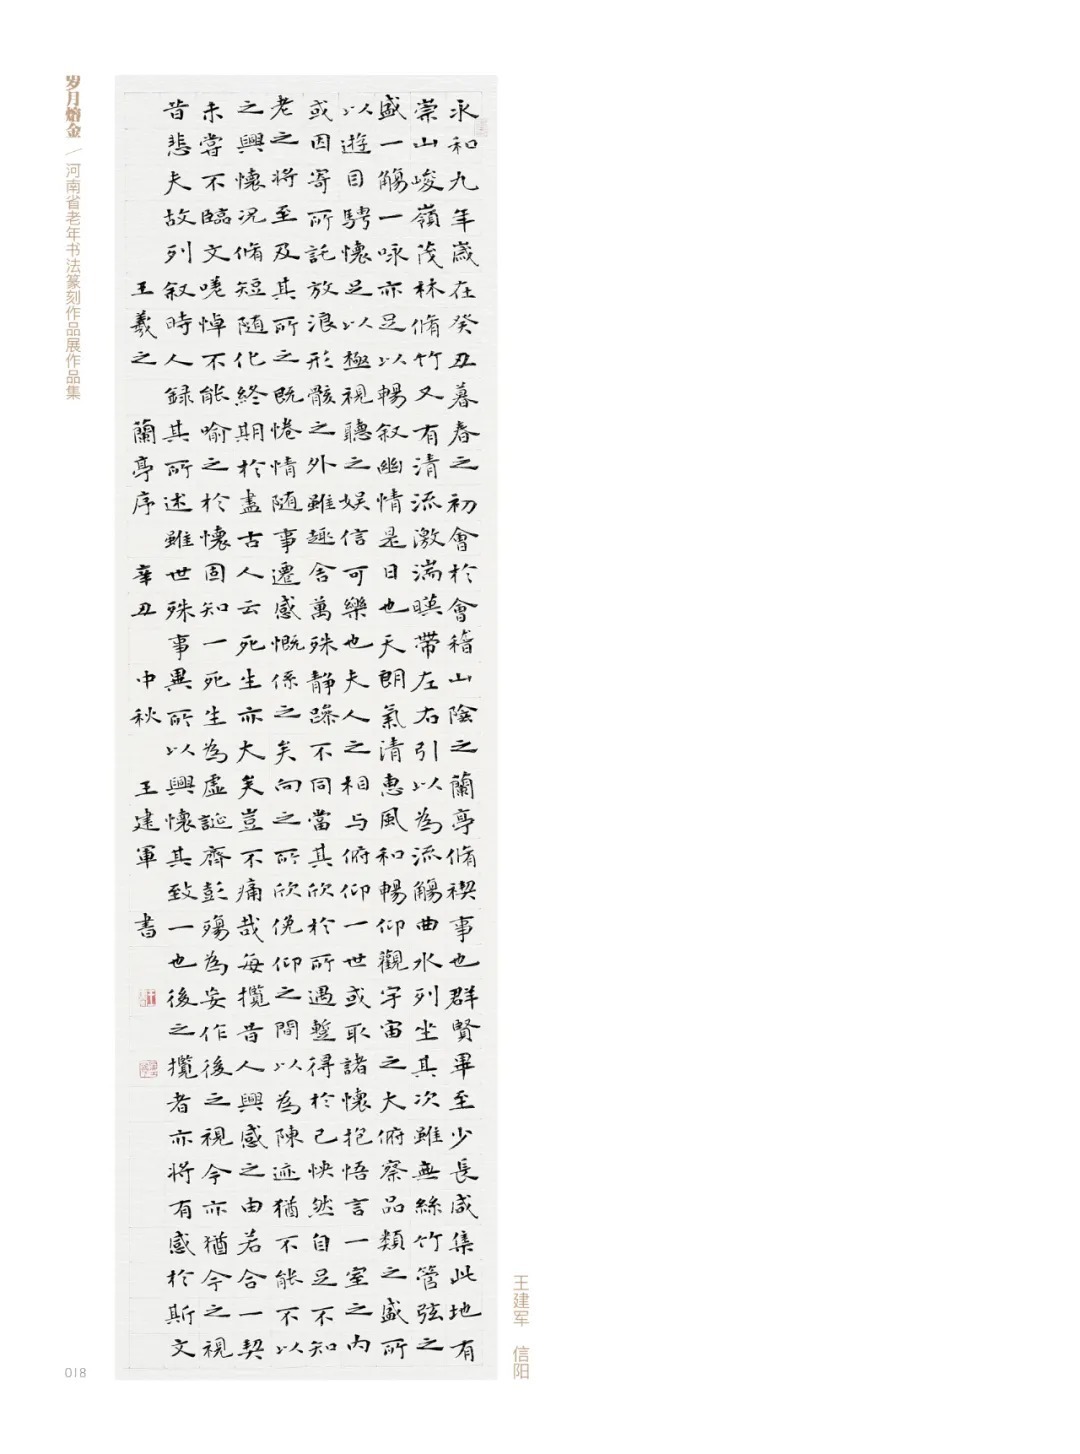 岁月熔金／河南省老年书法篆刻作品展作品集
永和九年歲在癸丑暮春之初會於會稽山陰之蘭亭脩禊事也群賢畢至少長咸集此地有
崇山峻嶺茂林脩竹又有清流激湍暎帶左右引以為流觴曲水列坐其次雖無絲竹管弦之
盛一觴一咏亦足以暢叙幽情是日也天朗氣清惠風和暢仰觀宇宙之大俯察品類之盛所
以遊目騁懷足以極視聽之娱信可樂也夫人之相与俯仰一世或取諸懷抱悟言一室之内
或因寄所託放浪形骸之外雖趣舍萬殊静躁不同當其欣於所遇蹔得於己怏然自足不知
老之将至及其所之既惓情随事遷感慨係之矣向之所欣俛仰之間以為陳迹猶不能不以
之興懷況脩短随化終期於盡古人云死生亦大矣豈不痛哉每攬昔人興感之由若合一契
未嘗不臨文嗟悼不能喻之於懷固知一死生為虛誕齊彭殤為妄作後之視今亦猶今之視
昔悲夫故列叙時人録其所述雖世殊事異所以興懷其致一也後之攬者亦将有感於斯文
王羲之 蘭亭序 辛丑 中秋 王建軍 書
王建军 信阳
018